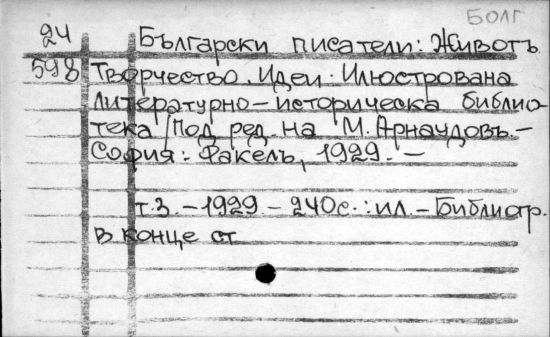 БОЛГ
24 Български писатели: Животъ
598 Творчество. Идеи. Илюстрована
литературно-историческа библио-
тека / Под ред. на М. Арнаудовъ.-
София: Факелъ, 1929. -
т.3. - 1929. - 240с.: ил. - Библиогр.
в конце ст